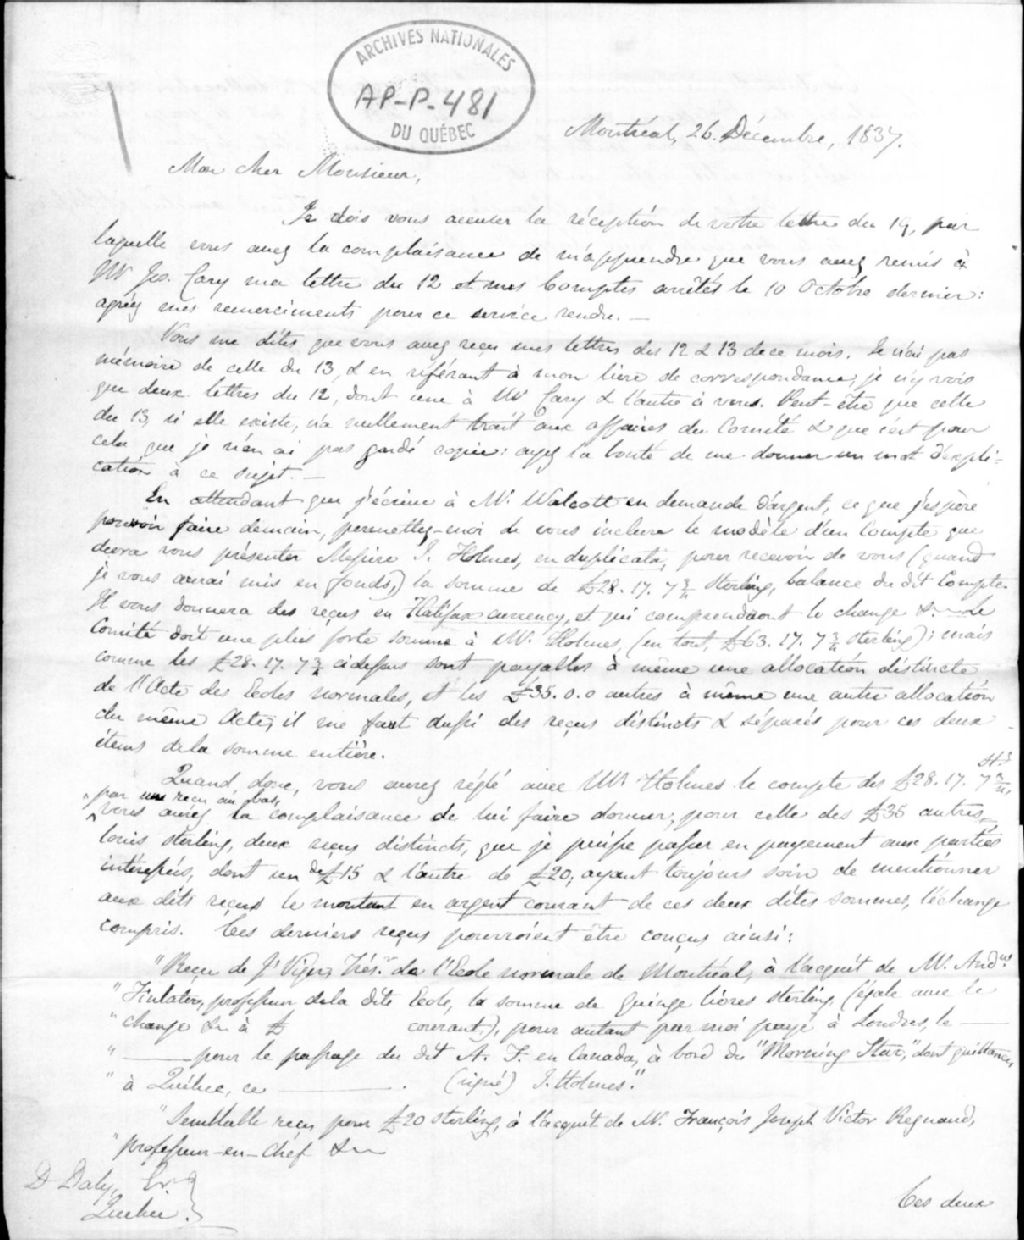 ARCHIVES NATIONALES
AP-P-481
DU QUÉBEC
Montréal, 26 Décembre, 1837.
Mon cher Monsieur,
Je dois vous accuser la réception de votre lettre du 19, par
laquelle vous avez la complaisance de m'apprendre que vous avez remis à
Mr Jos. Cary ma lettre du 12 et mes Comptes arrêtés le 10 Octobre dernier:
agréez mes remerciments pour ce service rendu. —
Vous me dites que vous avez reçu mes lettres des 12 & 13 de ce mois. Je n'ai pas
mémoire de celle du 13, & en référant à mon livre de correspondance, je n'y vois
que deux lettres du 12, dont une à Mr Cary & l'autre à vous. Peut-être que celle
du 13, si elle existe, n'a nullement trait aux affaires du Comité & que c'est pour
cela que je n'en ai pas gardé copie: ayez la bonté de me donner un mot d'expli-
cation à ce sujet. —
En attendant que j'écrive à Mr Walcott en demande d'argent, ce que j'espère
pouvoir faire demain, permettez-moi de vous inclure le modèle d'un Compte que
devra vous présenter Messire J. Holmes, en duplicata, pour recevoir de vous (quand
je vous aurai mis en fonds,) la somme de £28.17.7½ sterling, balance du dit Compte.
Il vous donnera des reçus en Halifax currency, et qui comprendront le change &c — Le
Comité doit une plus forte somme à Mr Holmes, (en tout, £63.17.7½ sterling); mais
comme les £28.17.7½ cidessus sont payables à même une allocation distincte
de l'Acte des Ecoles normales, et les £35.0.0 autres à même une autre allocation
du même Acte, il me faut aussi des reçus distincts & séparés pour ces deux
items de la somme entière.
Quand, donc, vous aurez réglé avec Mr Holmes le compte des £28.17.7½ Stg
par un reçu au bas,
vous aurez la complaisance de lui faire donner, pour celle des £35 autres,
louis sterling, deux reçus distincts, que je puisse passer en payement aux parties
intéressées, dont un de £15 & l'autre de £20, ayant toujours soin de mentionner
aux dits reçus le montant en argent courant de ces deux dites sommes, l'échange
compris. Ces derniers reçus pourroient être conçus ainsi:
"Reçu de J. Viger, Trés. de l'Ecole normale de Montréal, à l'acquit de Mr. Andw
" Findlater, professeur de la dite Ecole, la somme de Quinze livres sterling (égale avec le
" change &c à £ courant), pour autant par moi payé à Londres, le —
" — pour le passage du dit A. F. en Canada, à bord du "Morning Star," dont quittance,
" à Québec, ce — . (signé) J. Holmes."
"Semblable reçu pour £20 sterling, à l'acquit de Mr. François Joseph Victor Regnaud,
" professeur-en-chef &c
D Daly, Ecr
Québec.
Ces deux